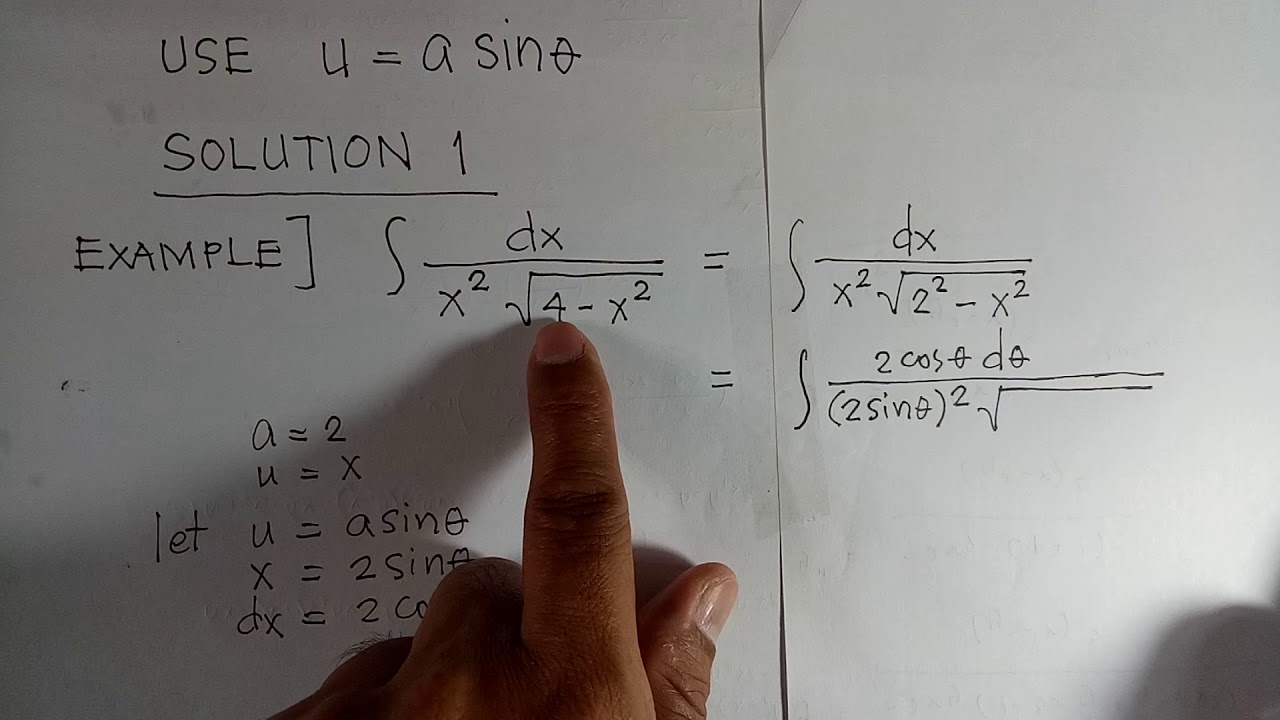 USE u = a sinθ
SOLUTION 1
EXAMPLE] ∫ dx / x² √(4 - x²) = ∫ dx / x² √(2² - x²)
= ∫ 2 cosθ dθ / (2sinθ)² √
a = 2
u = x
let u = a sinθ
x = 2 sinθ
dx = 2